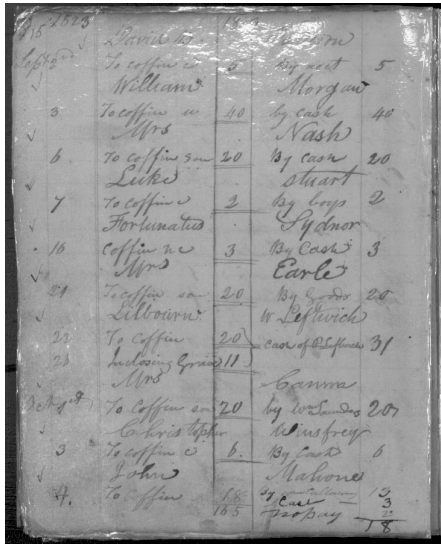 1823
David
Sept 2nd To coffin c 5 By acct 5
William Morgan
3 To coffin w 40 by Cash 40
Mrs Nash
6 To coffin son 20 By Cash 20
Luke Stuart
7 To coffin c 2 By boys 2
Fortunatus Sydnor
16 Coffin ne 3 By Cash 3
Mrs Earle
21 To coffin son 20 By Goods 20
Lilbourn W Leftwich
22 To Coffin 20
23 Inclosing Grave 11 Cash of Leftwich 31
Mrs
Oct 1st To Coffin son 20 by Wm Saunders 20
Christopher Winfrey
3 To Coffin c 6 By Cash 6
John Mahone
4 To Coffin 18 By 13
Cash 3
165 To pay
18